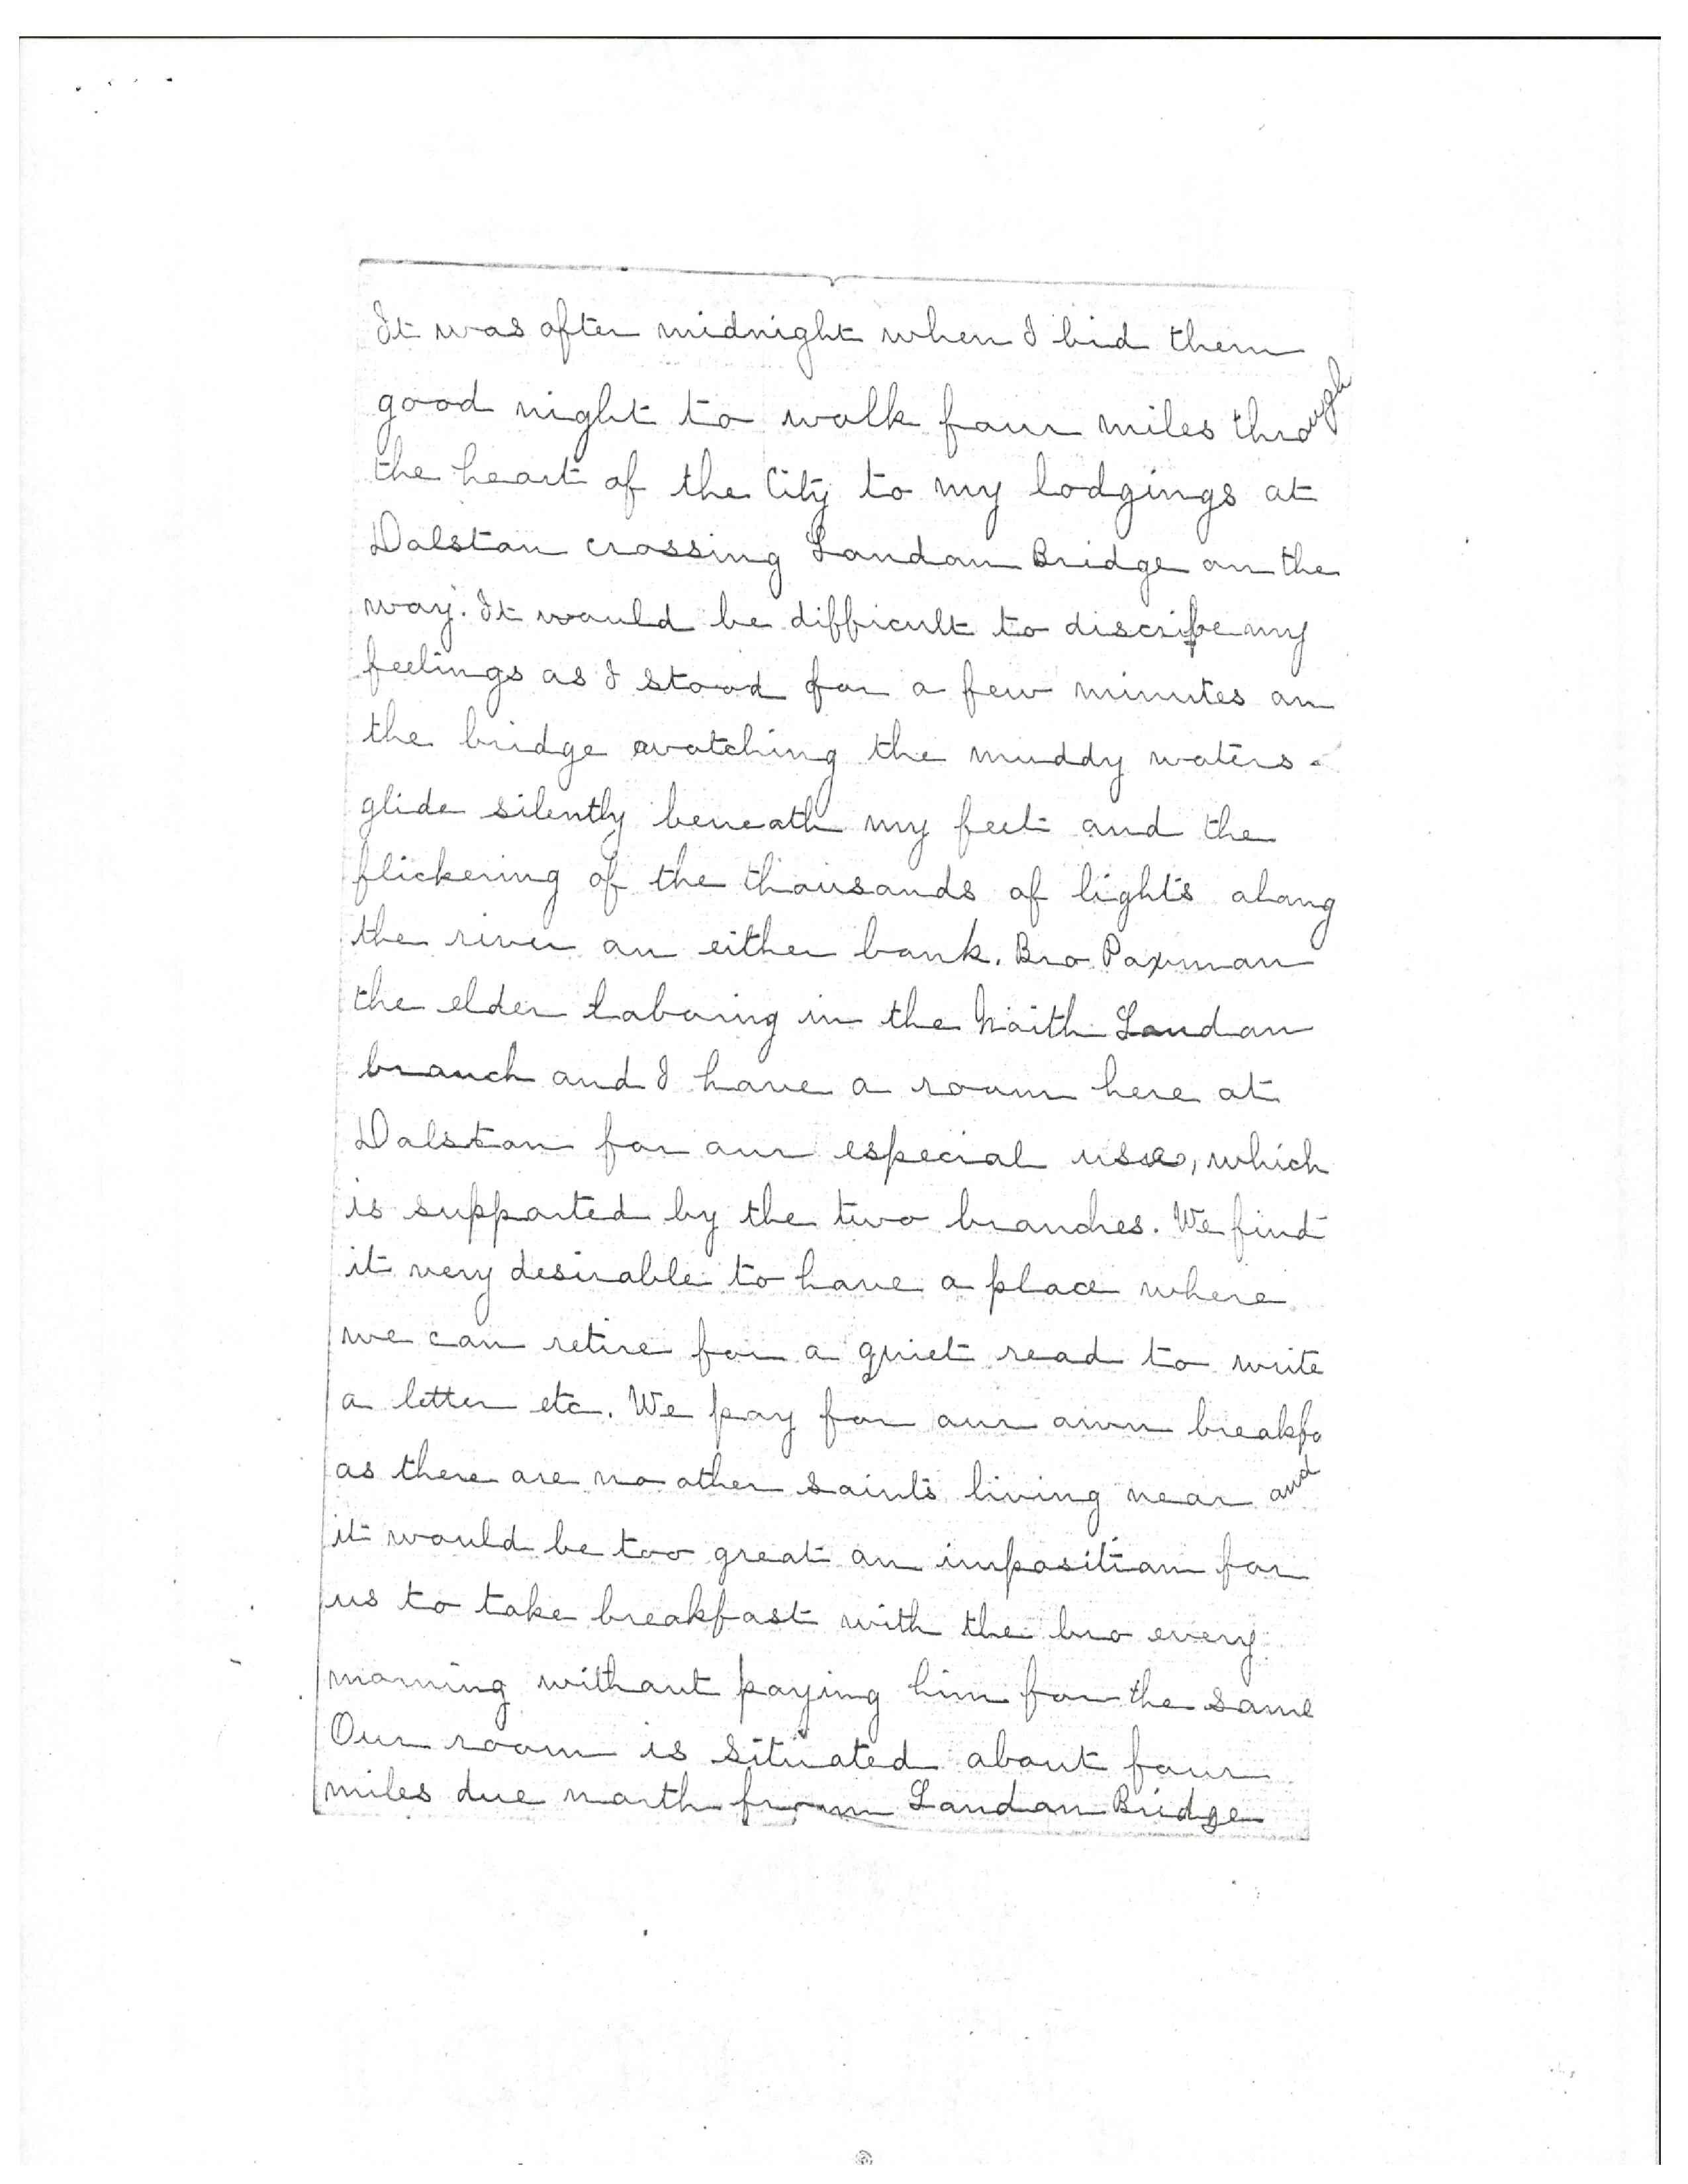 It was after midnight when I bid them
good night to walk four miles through
the heart of the City to my lodgings at
Dalston crossing London Bridge on the
way. It would be difficult to discribe my
feelings as I stood for a few minutes on
the bridge watching the muddy waters
glide silently beneath my feet and the
flickering of the thousands of lights along
the river on either bank. Bro Paxman
the elder laboring in the North London
branch and I have a room here at
Dalston for our especial use, which
is supported by the two branches. We find
it very desirable to have a place where
we can retire for a quiet read to write
a letter etc. We pay for our own breakfa
as there are no other saints living near and
it would be too great an imposition for
us to take breakfast with the bro every
morning without paying him for the same
Our room is situated about four
miles due north from London Bridge